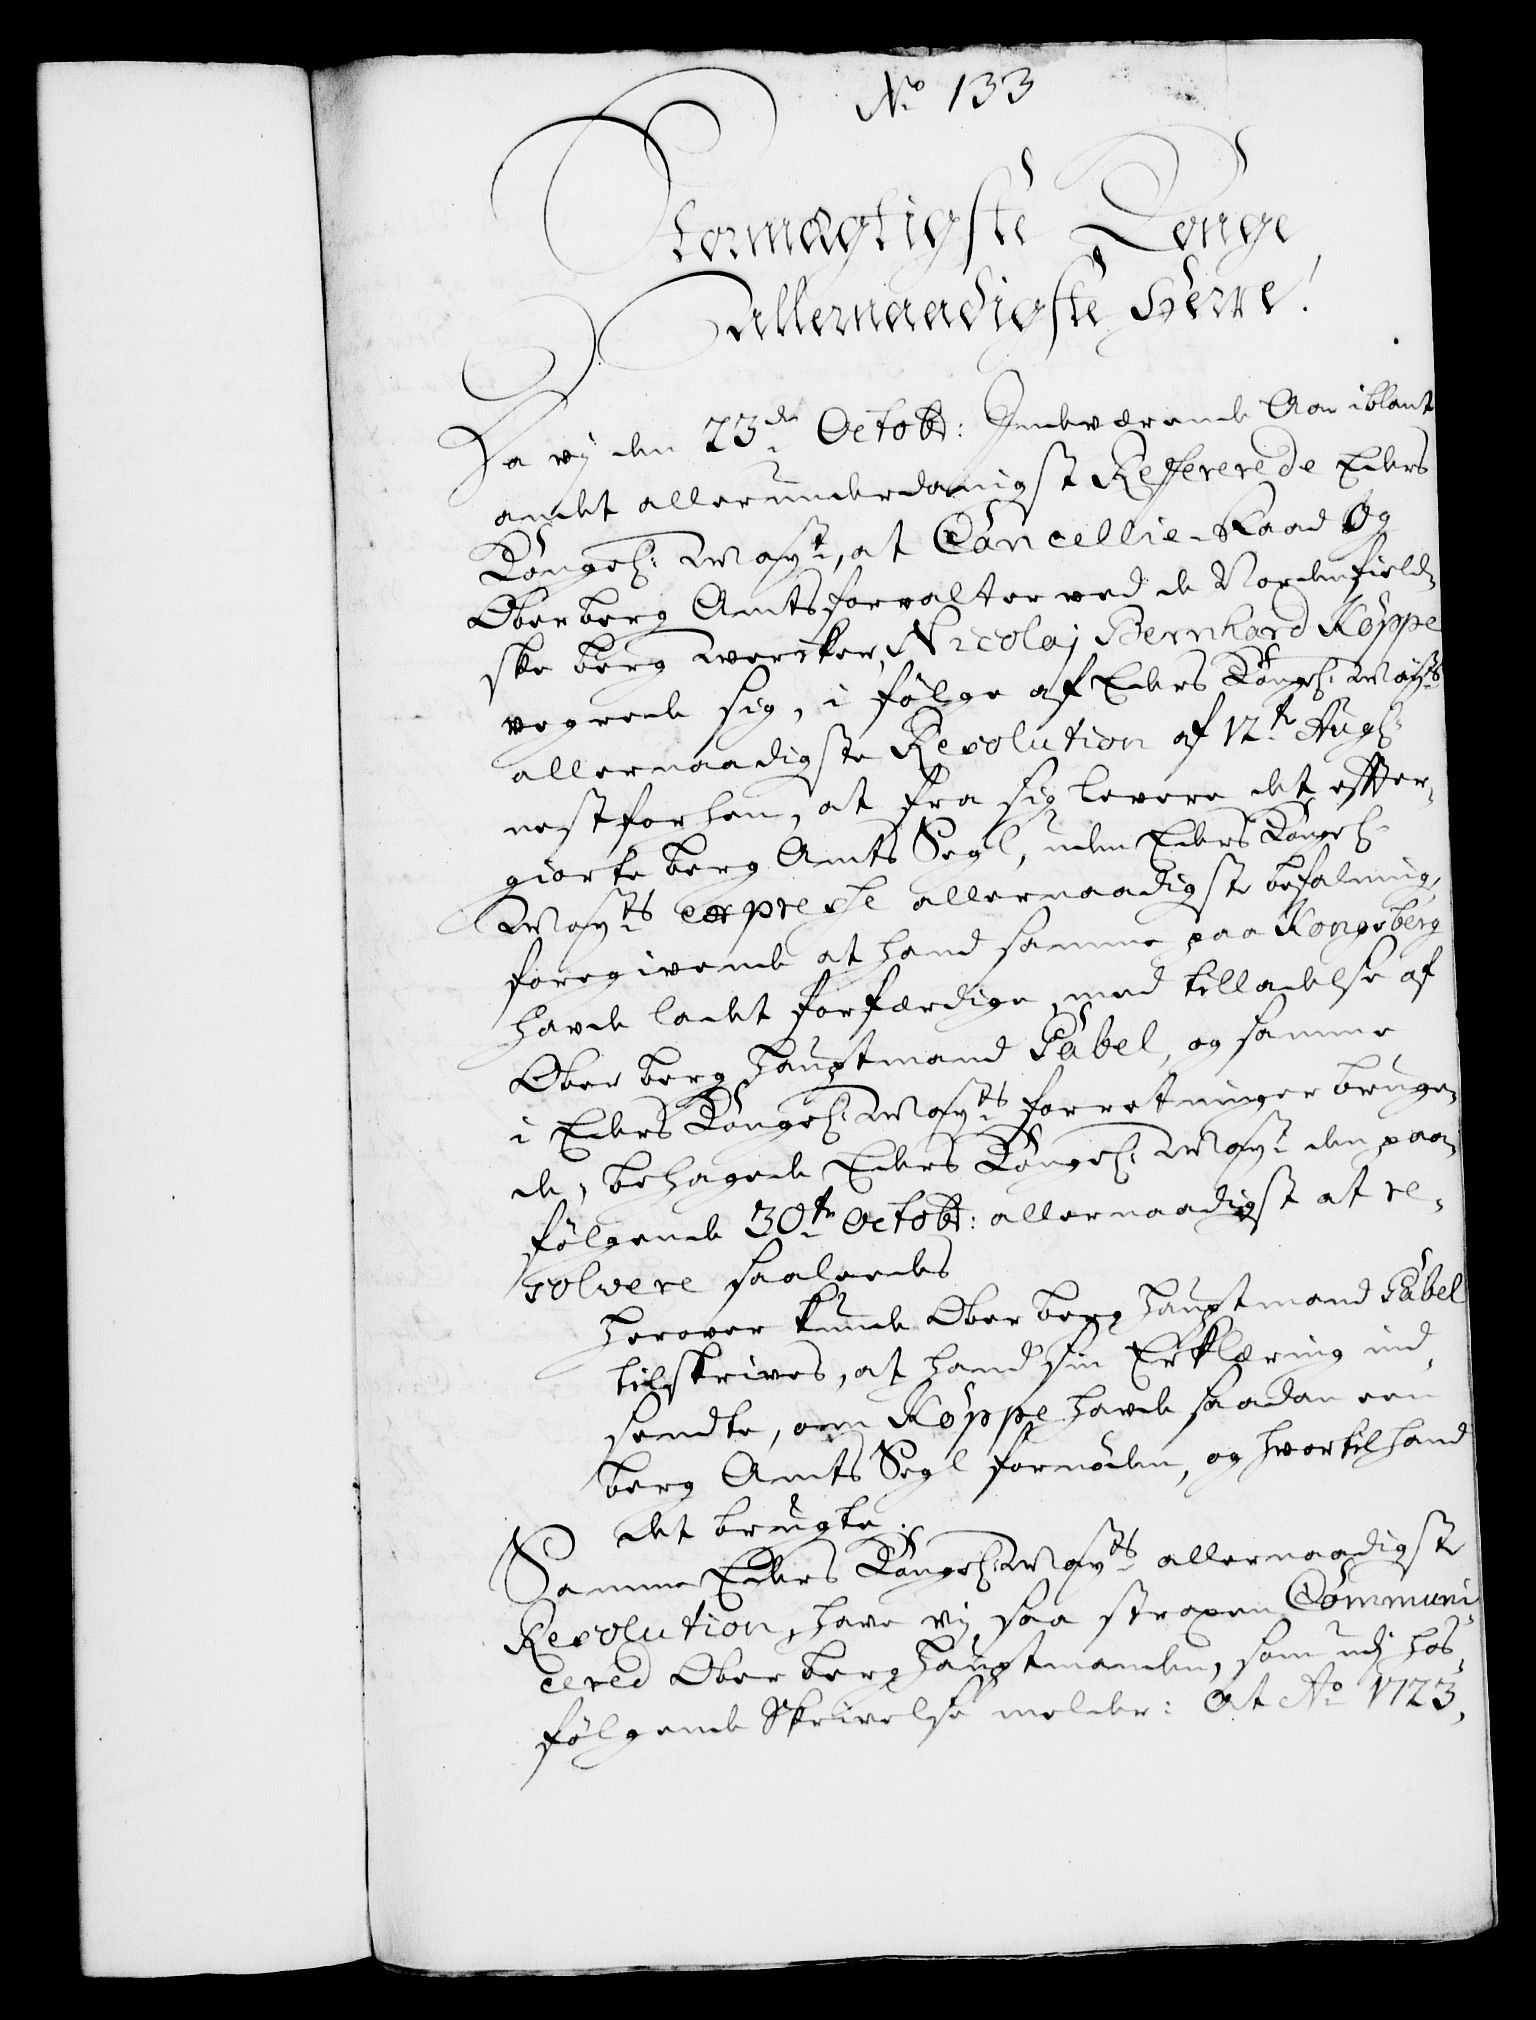 No 133
Stormægtigste Konge,
allernaadigste Herre!
Da vj den 23de Octobr: Indeværende Aar iblant
andet allerunderdanigst Refererede Eders
Kongel: Mayt, at Cancellie-Raad Og
Oberberg Amtsforvalter ved de Nordenfield-
ske bergwercker, Nicolaj Bernhard Köppe
vegrede sig, i følge af Eders Kongel: Mayts
allernaadigste Resolution af 12te Augl:
nestforhen, at fra sig levere det efter-
giorte berg Amts Segl, uden Eders Kongel:
Mayts expresse allernaadigste befalning,
foregivende at hand samme paa Kongsberg
havde ladet forfærdige, med tilladelse af
Oberberg Hauptmand Pabel, og samme
i Eders Kongel: Mayts forretninger brugen-
de, behagede Eders Kongel: Mayt den paa-
følgende 30te Octobr: allernaadigst at re-
solvere saaledes
herover kunde Oberberg Hauptmand Pabel
tilskrives, at hand sin Erklæring ind-
sendte, om Köppe havde saadan een
berg Amts Segl fornöden, og hvortil hand
det brugte.
Samme Eders Kongel: Mayts allernaadigste
Resolution, have vj saa strax Communi-
cered Oberberg Hauptmanden, som udj hos-
følgende Skrivelse melder: At Ao 1723,